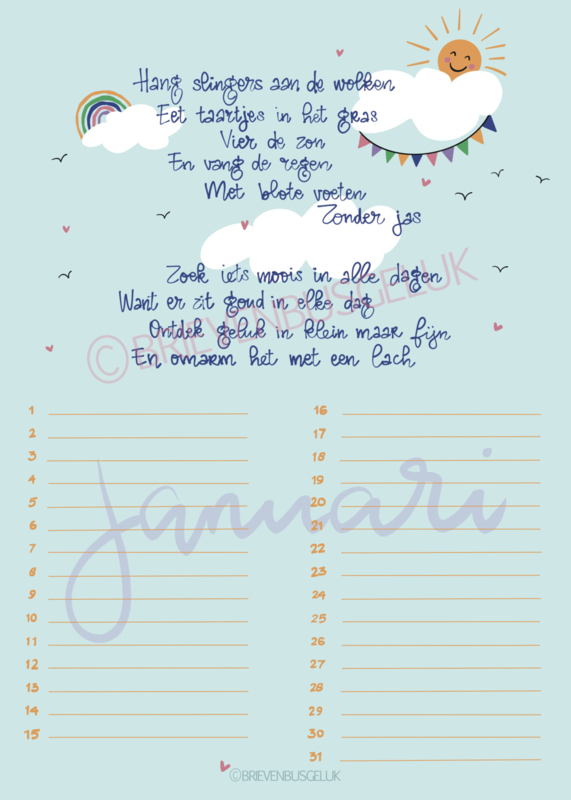 Hang slingers aan de wolken
Eet taartjes in het gras
Vier de zon
En vang de regen
Met blote voeten
Zonder jas
Zoek iets moois in alle dagen
Want er zit goud in elke dag
Ontdek geluk in klein maar fijn
En omarm het met een lach
©BRIEVENBUSGELUK
januari
1
2
3
4
5
6
7
8
9
10
11
12
13
14
15
16
17
18
19
20
21
22
23
24
25
26
27
28
29
30
31
©BRIEVENBUSGELUK